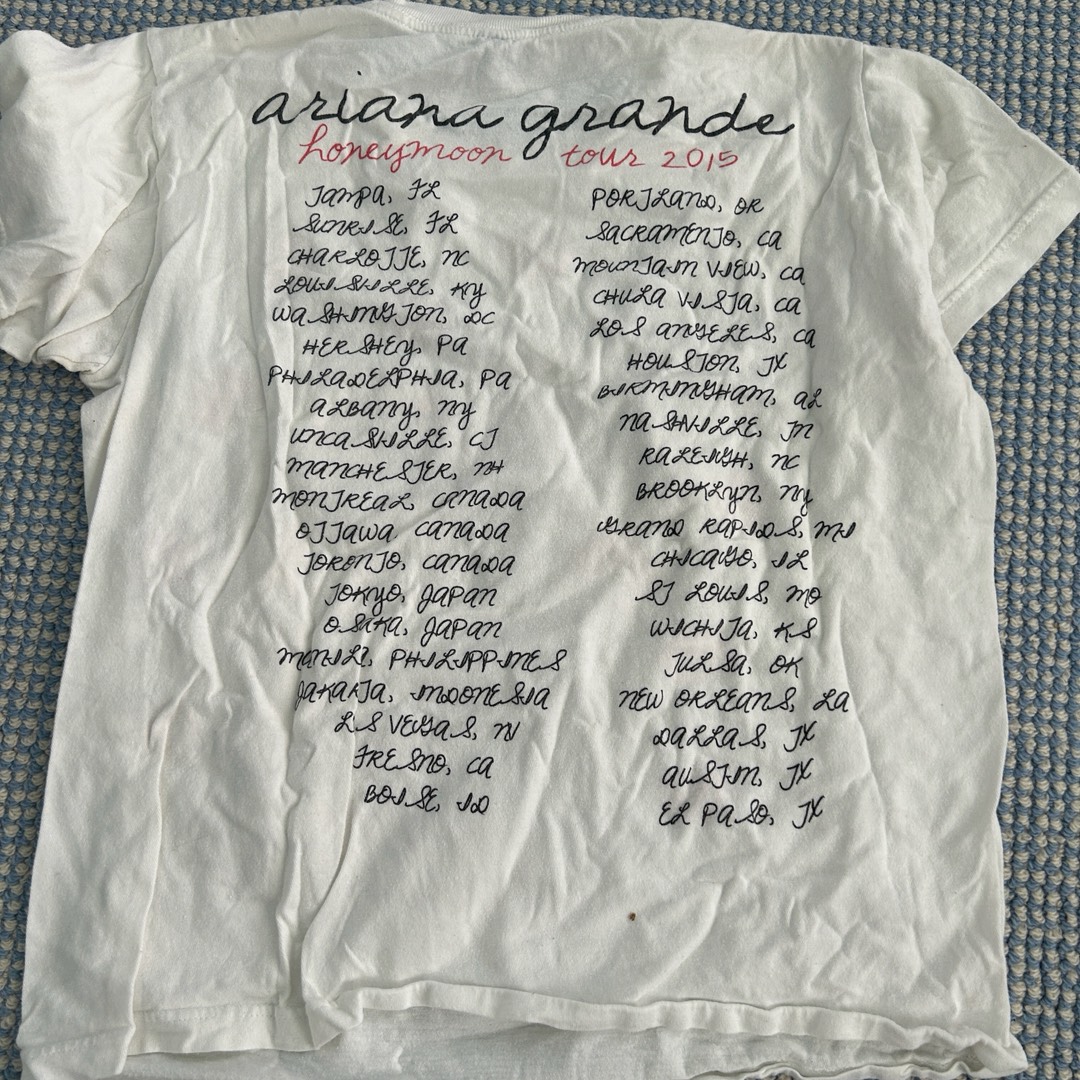 ariana grande
honeymoon tour 2015
TAMPA, FL
SUNRISE, FL
CHARLOTTE, NC
LOUISVILLE, KY
WASHINGTON, DC
HERSHEY, PA
PHILADELPHIA, PA
ALBANY, NY
UNCASVILLE, CT
MANCHESTER, NH
MONTREAL, CANADA
OTTAWA CANADA
TORONTO, CANADA
TOKYO, JAPAN
OSAKA, JAPAN
PHILIPPINES
JAKARTA, INDONESIA
LS VEGAS, NV
FRESNO, CA
BOISE, ID
PORTLAND, OR
SACRAMENTO, CA
MOUNTAIN VIEW, CA
CHULA VISTA, CA
LOS ANGELES, CA
HOUSTON, TX
BIRMINGHAM, AL
NASHVILLE, TN
RALEIGH, NC
BROOKLYN, NY
GRAND RAPIDS, MI
CHICAGO, IL
ST LOUIS, MO
WICHITA, KS
TULSA, OK
NEW ORLEANS, LA
DALLAS, TX
AUSTIN, TX
EL PASO, TX